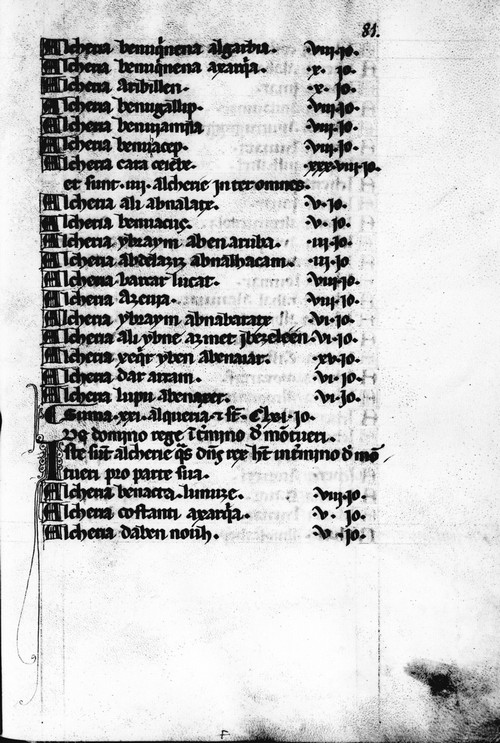 81.
Alcheria beniuq̃nena algarbia. viii. Jo.
Alcheria beniuq̃nena axarq̃a. x. Jo.
Alcheria Aribillen. x. Jo.
Alcheria beniigallip. viii. Jo.
Alcheria beniiamila viii. Jo.
Alcheria beniiacep. viii. Jo.
Alcheria cara ceiete. xxxviii. Jo.
et sunt. iii. alcherie inter omnes.
Alcheria ali abnalate. v. Jo.
Alcheria beniacne. v. Jo.
Alcheria ybraym aben aruba. iii. Jo.
Alcheria abdelaziz abnalhacam. iii. Jo
Alcheria bacar lucat. viii. Jo.
Alcheria Azeyra. viii. Jo.
Alcheria ybraym abnabarate vi. Jo.
Alcheria ali ybne azmet Jbezeleen. vi. Jo.
Alcheria yeq̃r yben abenaiar. xv. Jo.
Alcheria dar axam. vi. Jo.
Alcheria lupu abenxer. vi. Jo.
Suma. xxi. alqueria ⁊ st̃. Clxi. Jo.
domino rege ĩ t̃mino d̃ mõtueri.
Iste sũt alcherie q̃s dñs rex h̃t in t̃mino d̃ mõ
tueri pro parte sua.
Alcheria benacra. lunize. viii. Jo.
Alcheria costanti axarq̃a. v. Jo.
Alcheria daben nouh. v. Jo.